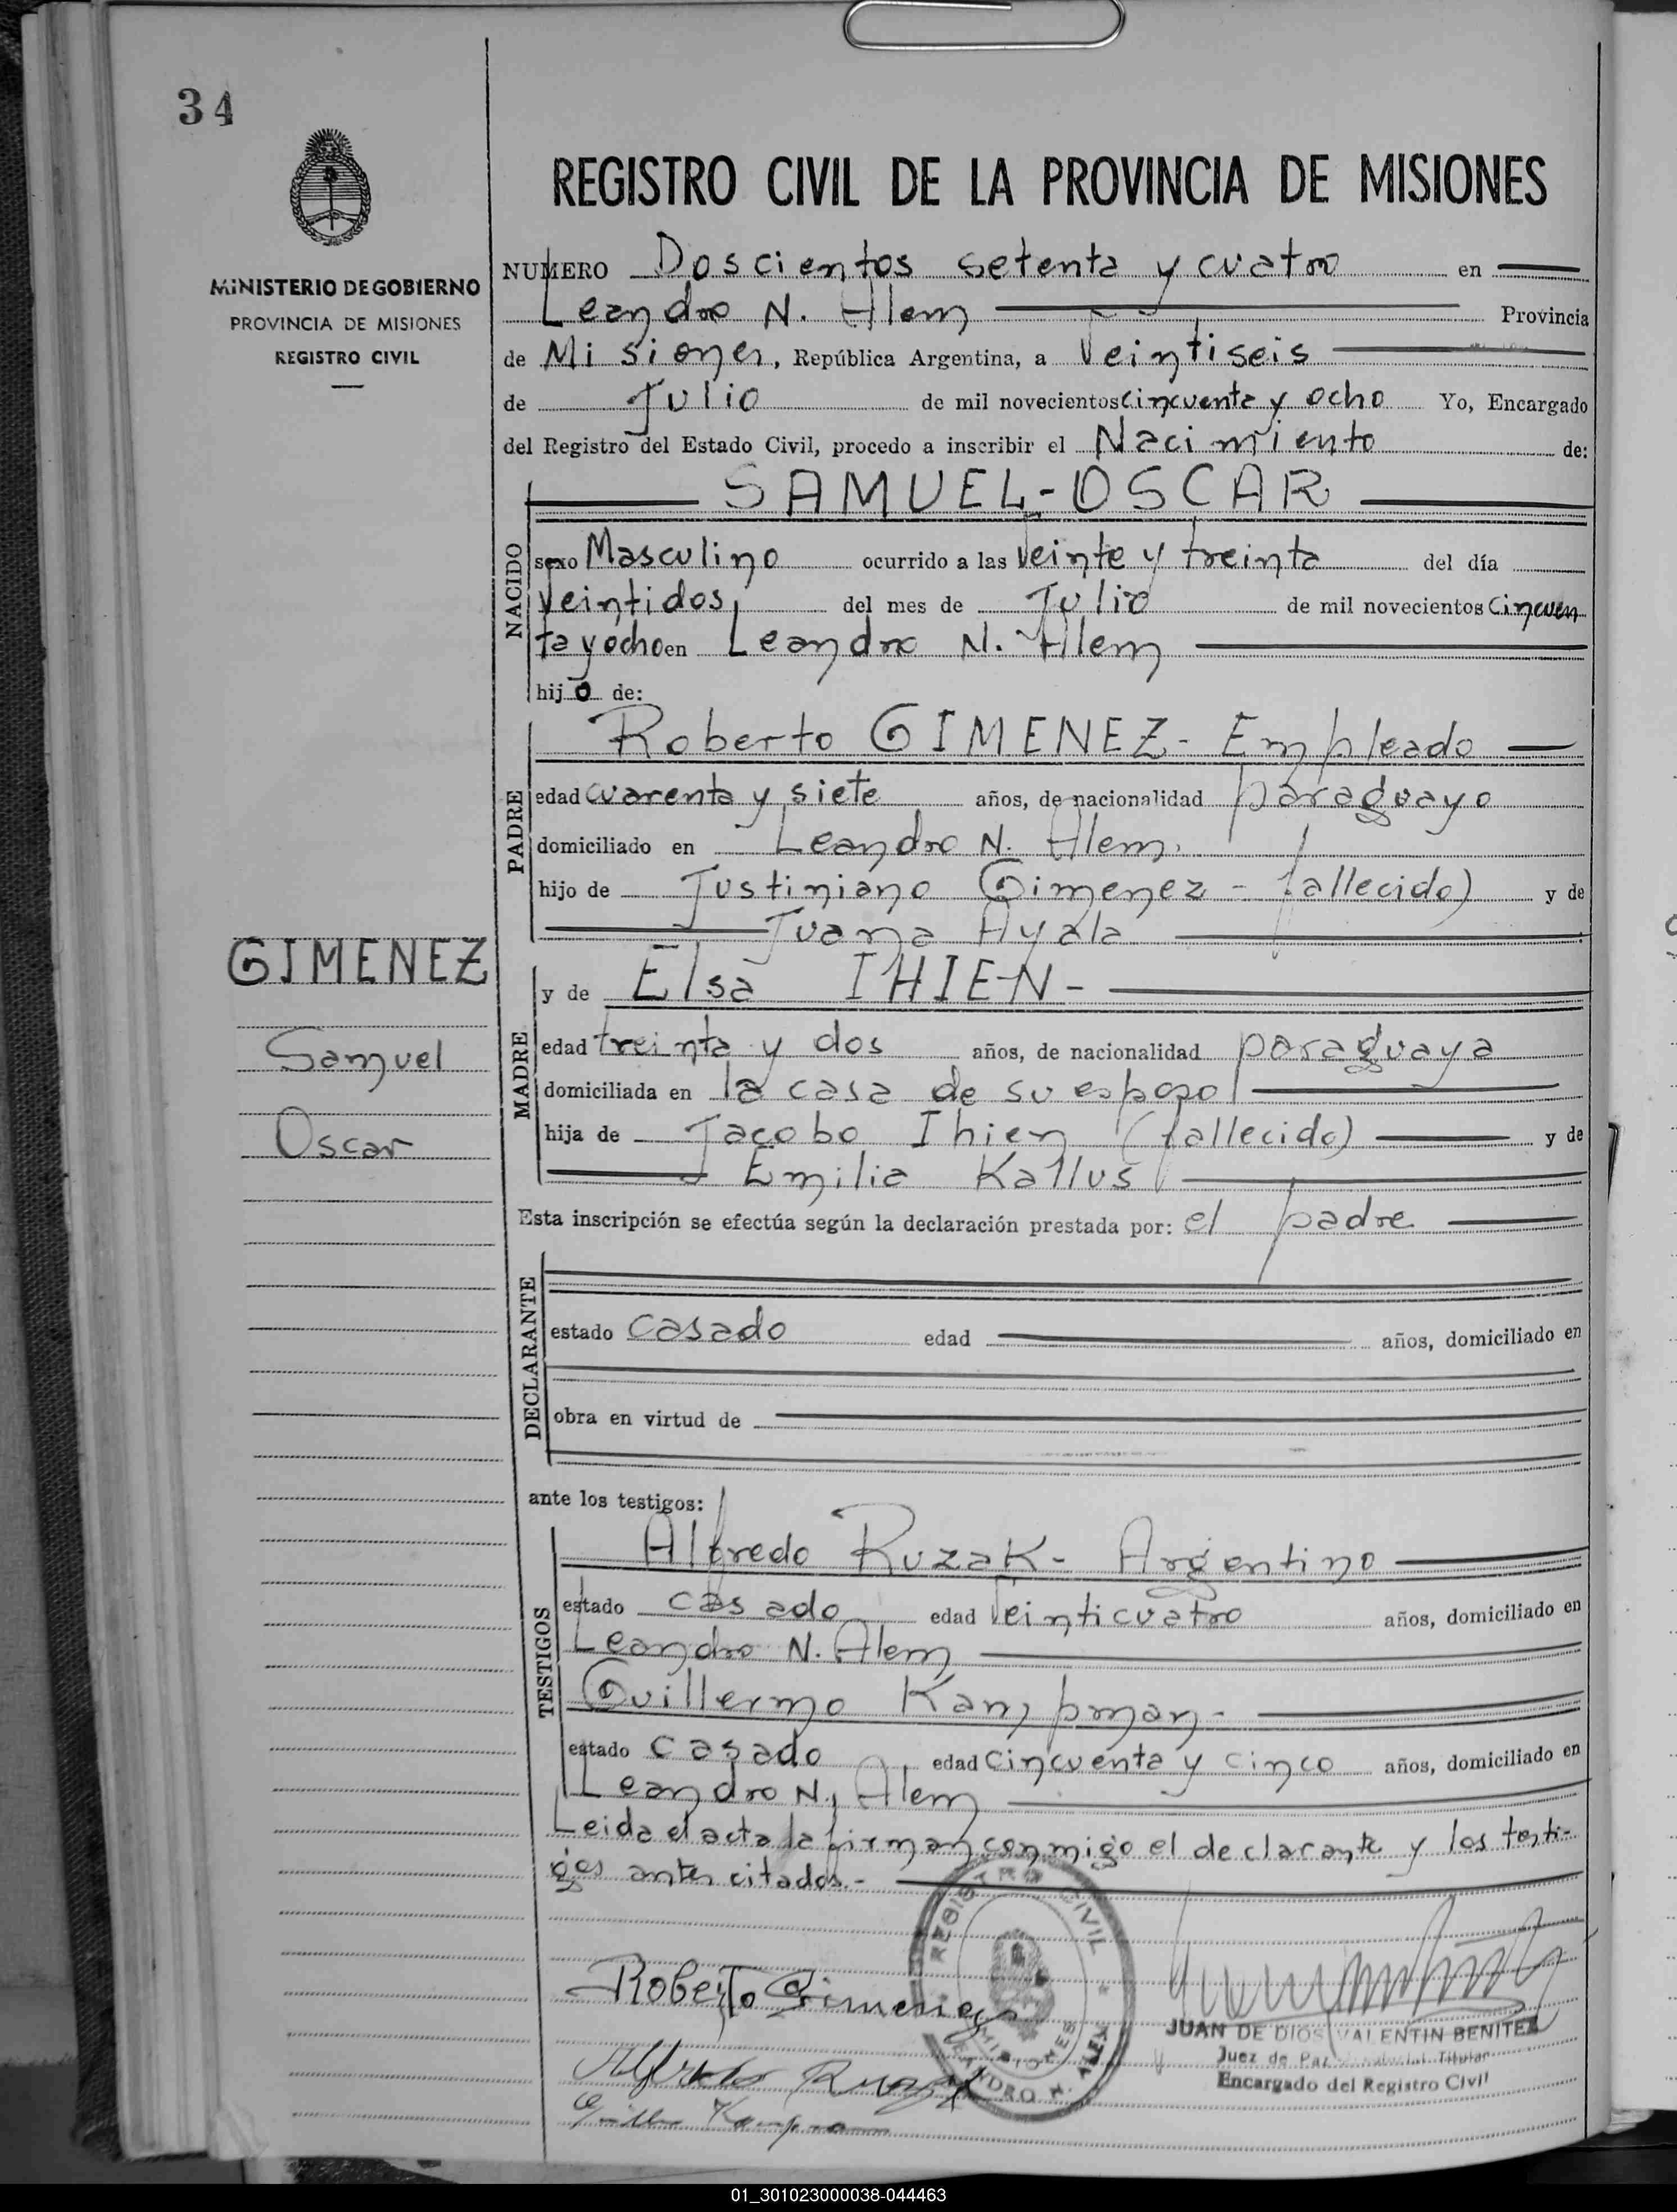 34
MINISTERIO DE GOBIERNO
PROVINCIA DE MISIONES
REGISTRO CIVIL
REGISTRO CIVIL DE LA PROVINCIA DE MISIONES
NUMERO Doscientos setenta y cuatro en
Leandro N. Alem Provincia
de Misiones, República Argentina, a Veintiseis
de Julio de mil novecientos cincuenta y ocho Yo, Encargado
del Registro del Estado Civil, procedo a inscribir el Nacimiento de:
SAMUEL-OSCAR
NACIDO
sexo Masculino ocurrido a las Veinte y treinta del día
Veintidos, del mes de Julio de mil novecientos Cincuen
ta y ocho en Leandro N. Alem
hijo de:
PADRE
Roberto GIMENEZ - Empleado
edad cuarenta y siete años, de nacionalidad paraguayo
domiciliado en Leandro N. Alem.
hijo de Justiniano Gimenez - fallecido) y de
Juana Ayala
GIMENEZ
Samuel
Oscar
MADRE
y de Elsa IHIEN -
edad treinta y dos años, de nacionalidad paraguaya
domiciliada en la casa de su esposo
hija de Jacobo Ihien (fallecido) y de
Emilia Kallus
Esta inscripción se efectúa según la declaración prestada por: el padre
DECLARANTE
estado casado edad años, domiciliado en
obra en virtud de
ante los testigos:
TESTIGOS
Alfredo Ruzak - Argentino
estado casado edad Veinticuatro años, domiciliado en
Leandro N. Alem
Guillermo Kampman -
estado casado edad cincuenta y cinco años, domiciliado en
Leandro N. Alem
Leida el acta la firman conmigo el declarante y los testi-
gos antes citados.-
REGISTRO CIVIL
MISIONES
LEANDRO N. ALEM
Roberto Gimenez
Alfredo Ruzak
JUAN DE DIOS VALENTIN BENITEZ
Juez de Paz Titular
Encargado del Registro Civil
01_301023000038-044463